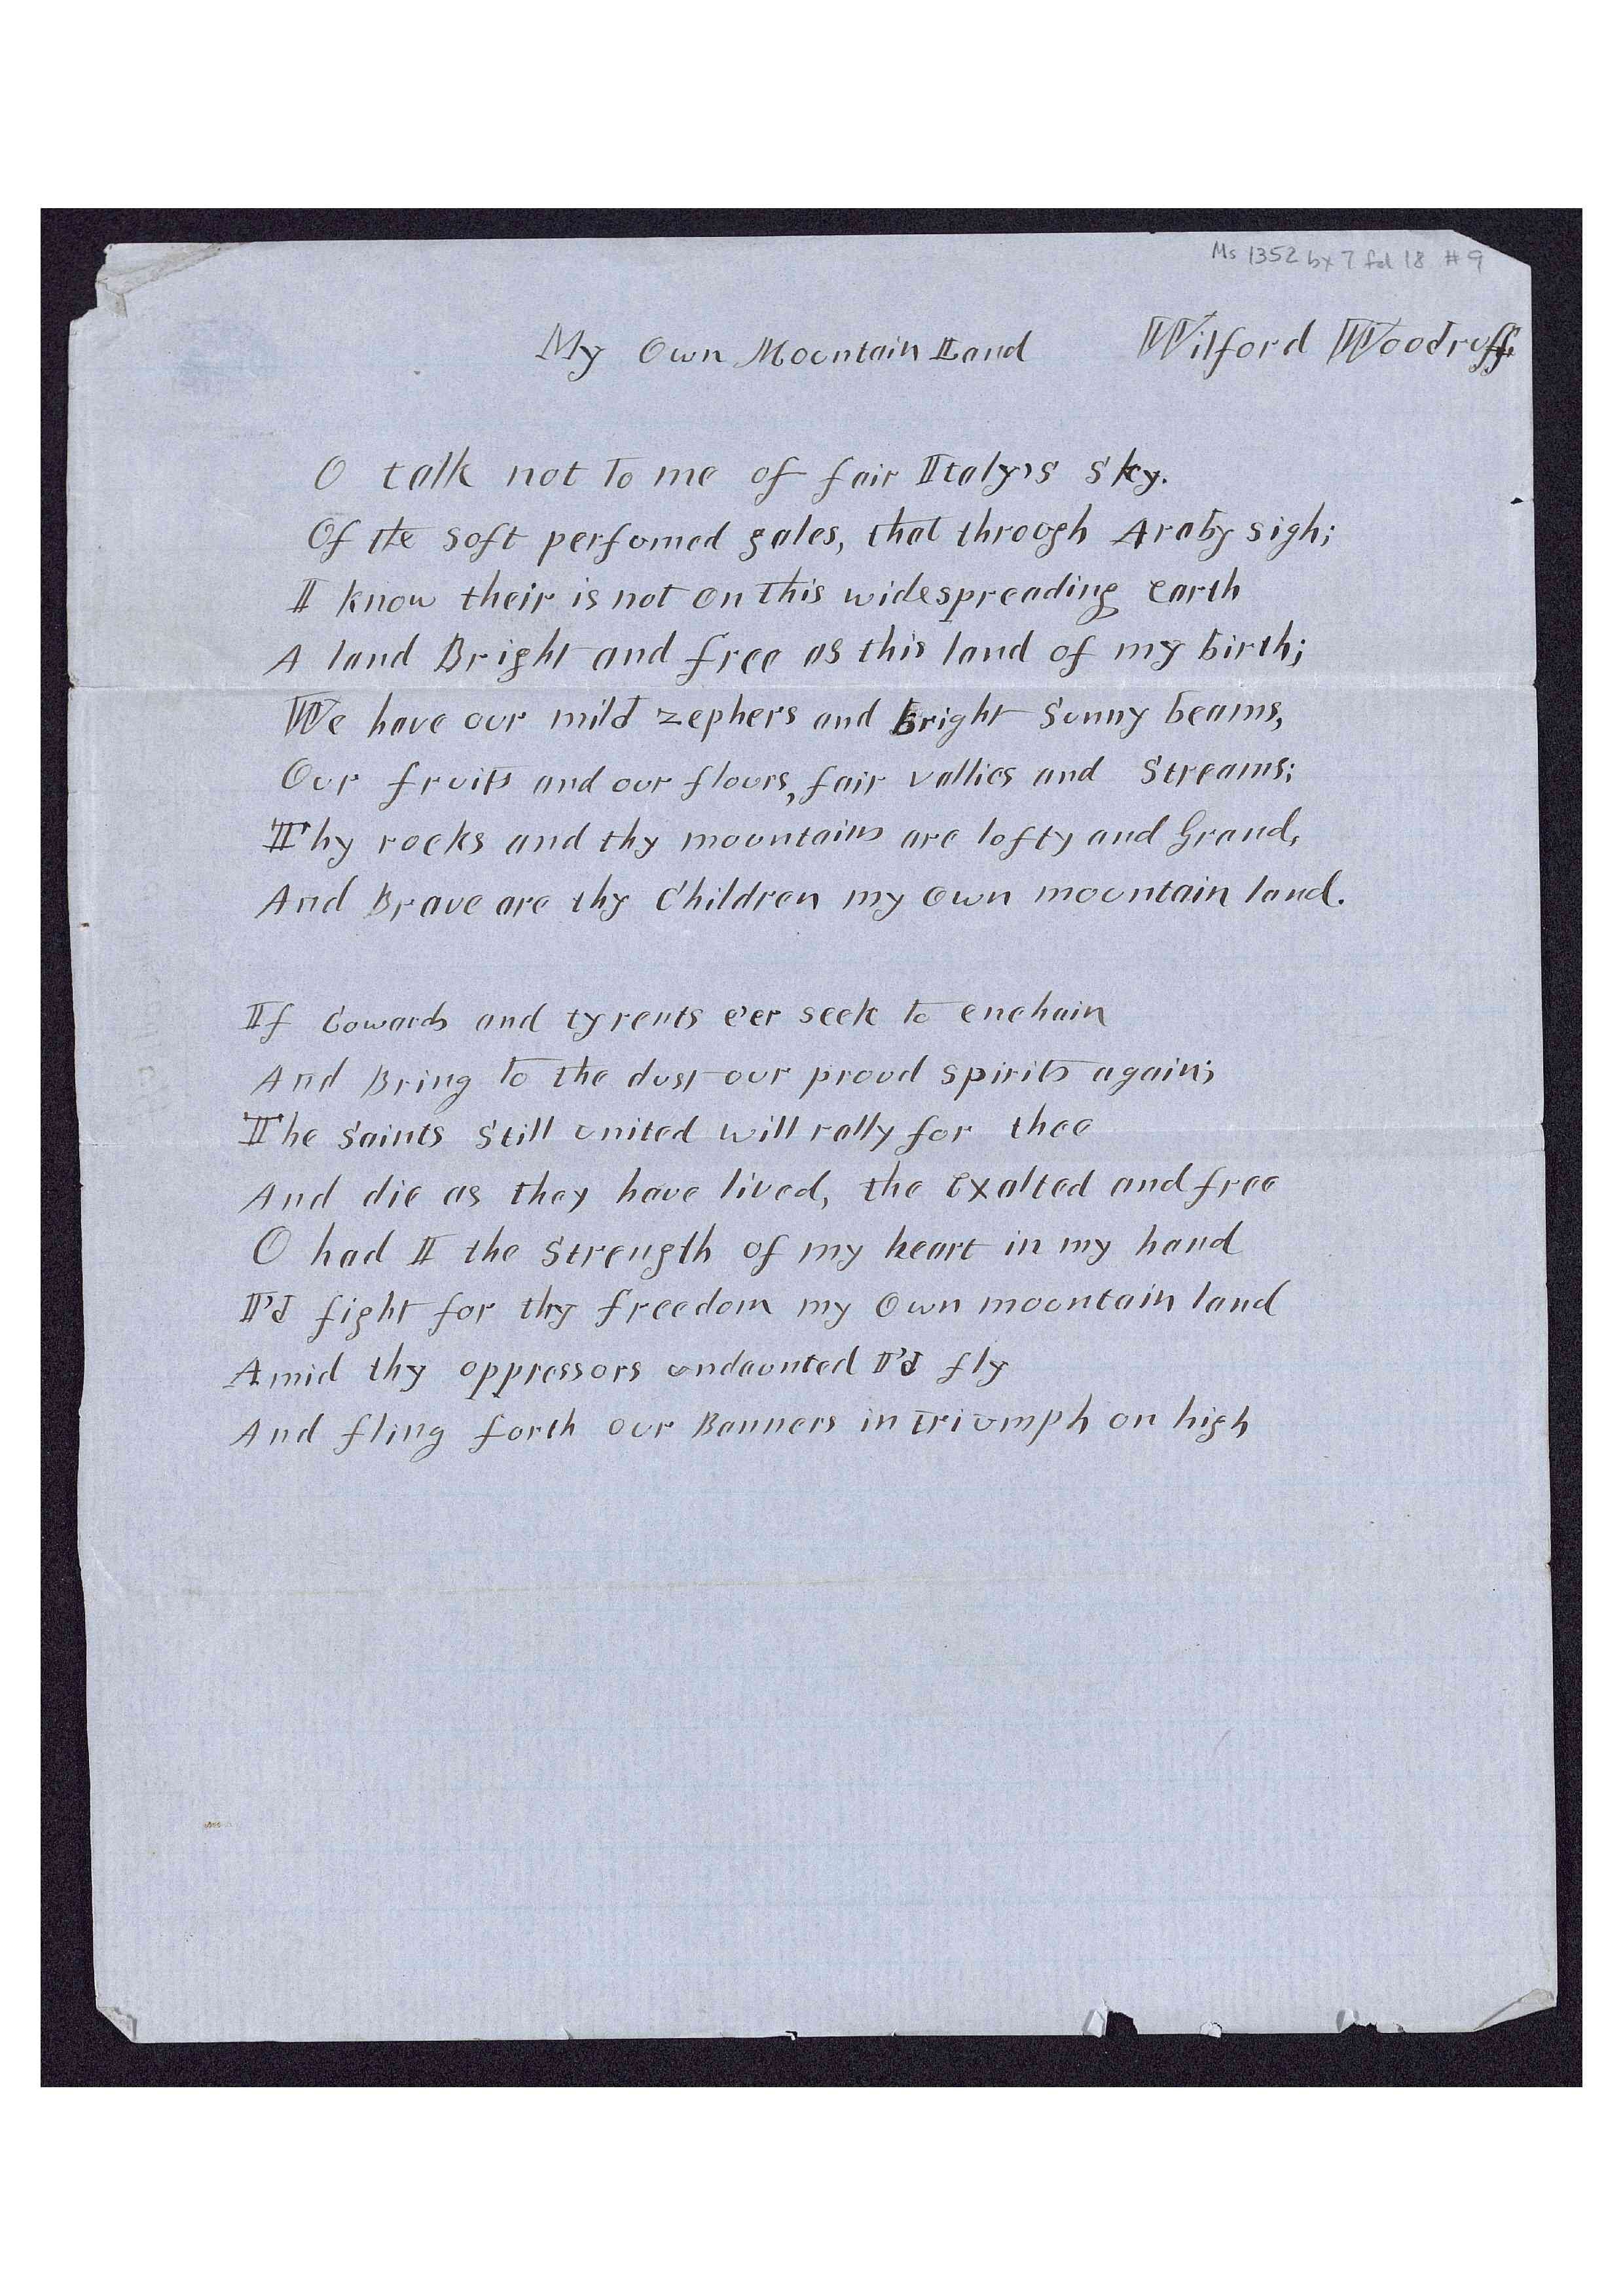 Ms 1352 bx 7 fd 18 #9
My Own Mountain Land Wilford Woodruff
O talk not to me of fair Italy's sky.
Of the soft perfumed gales, that through Araby sigh;
I know their is not on this widespreading earth
A land Bright and free as this land of my birth;
We have our mild zephers and bright Sunny beams,
Our fruits and our flours, fair vallies and Streams;
Thy rocks and thy mountains are lofty and Grand,
And Brave are thy Children my own mountain land.
If Cowards and tyrents e'er seek to enchain
And Bring to the dust our proud spirits again;
The Saints Still united will rally for thee
And die as they have lived, the exalted and free
O had I the Strength of my heart in my hand
I'd fight for thy freedom my own mountain land
Amid thy oppressors undaunted I'd fly
And fling forth our Banners in triumph on high